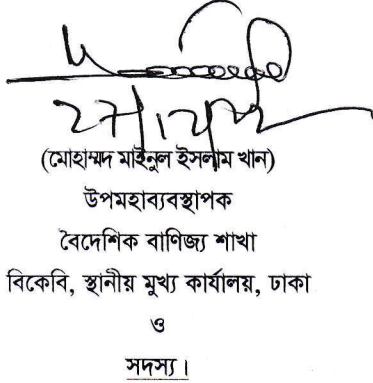 (মোহাম্মদ মাইনুল ইসলাম খান)
উপমহাব্যবস্থাপক
বৈদেশিক বাণিজ্য শাখা
বিকেবি, স্থানীয় মুখ্য কার্যালয়, ঢাকা
ও
সদস্য।